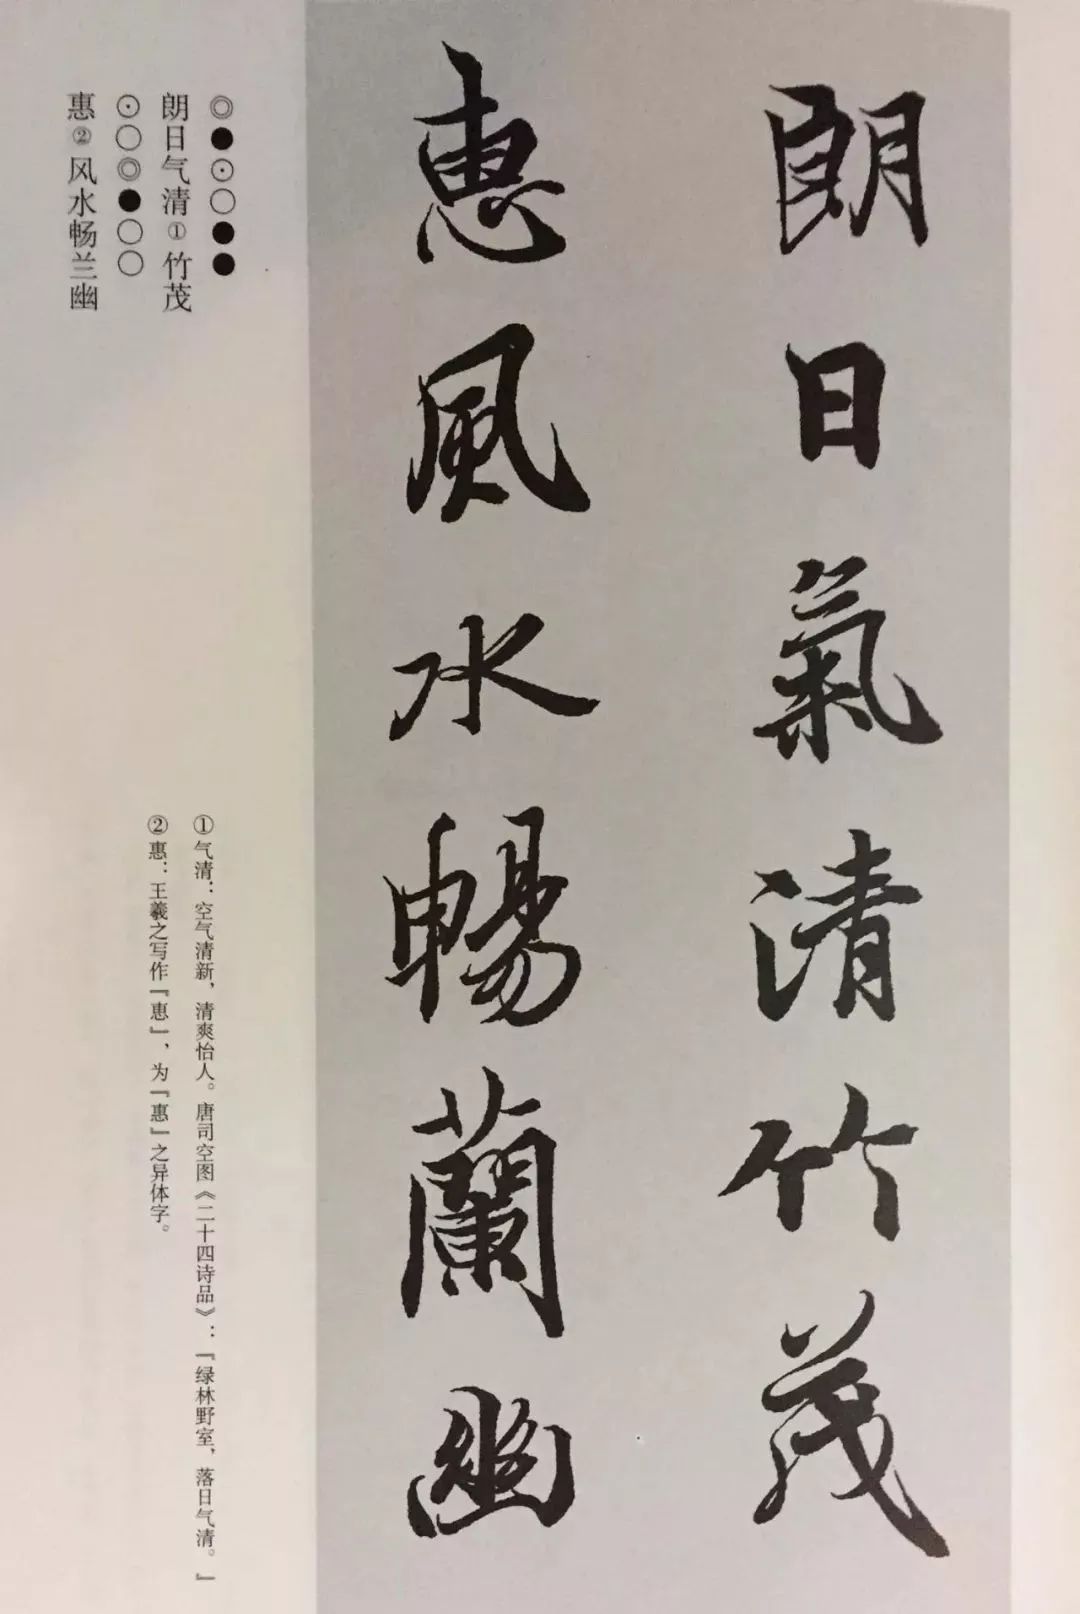 朗日氣清竹茂
惠風水暢蘭幽
◎●⊙○●●
朗日气清①竹茂
⊙○◎●○○
惠②风水畅兰幽
①气清：空气清新，清爽怡人。唐司空图《二十四诗品》：『绿林野室，落日气清。』
②惠：王羲之写作『恵』，为『惠』之异体字。